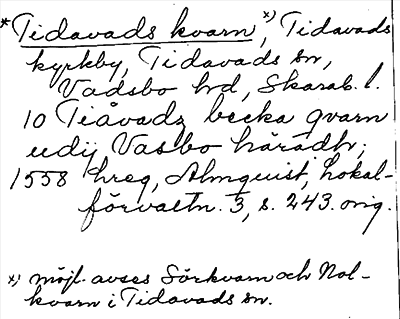 *Tidavads kvarn x), Tidavads
kyrkby, Tidavads sn,
Vadsbo hd, Skarab. l.
10 Tiåvadz becka qvarn
udij Vasbo häradh;
1558 hreg, Almquist, Lokal-
förvaltn. 3, s. 243. orig.
x) möjl. avses Sörkvarn och Nol-
kvarn i Tidavads sn.